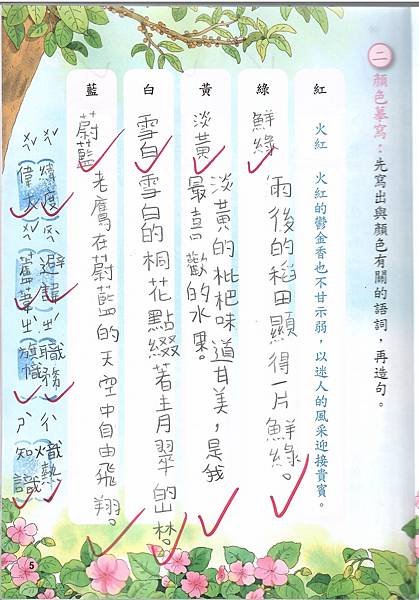 二 顏色摹寫：先寫出與顏色有關的語詞，再造句。
紅 火紅 火紅的鬱金香也不甘示弱，以迷人的風采迎接貴賓。
綠 鮮綠 雨後的稻田顯得一片鮮綠。
黃 淡黃 淡黃的枇杷味道甘美，是我
最喜歡的水果。
白 雪白 雪白的桐花點綴著青翠的山林。
藍 蔚藍 老鷹在蔚藍的天空中自由飛翔。
避
職務
熾熱
偉大
旗幟
知識
5